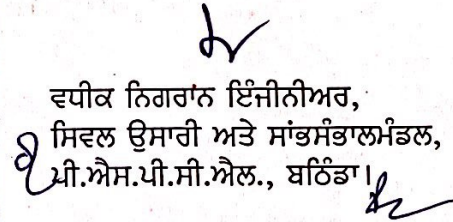 ਵਧੀਕ ਨਿਗਰਾਂਨ ਇੰਜੀਨੀਅਰ,
ਸਿਵਲ ਉਸਾਰੀ ਅਤੇ ਸਾਂਭਸੰਭਾਲਮੰਡਲ,
ਪੀ.ਐਸ.ਪੀ.ਸੀ.ਐਲ., ਬਠਿੰਡਾ।